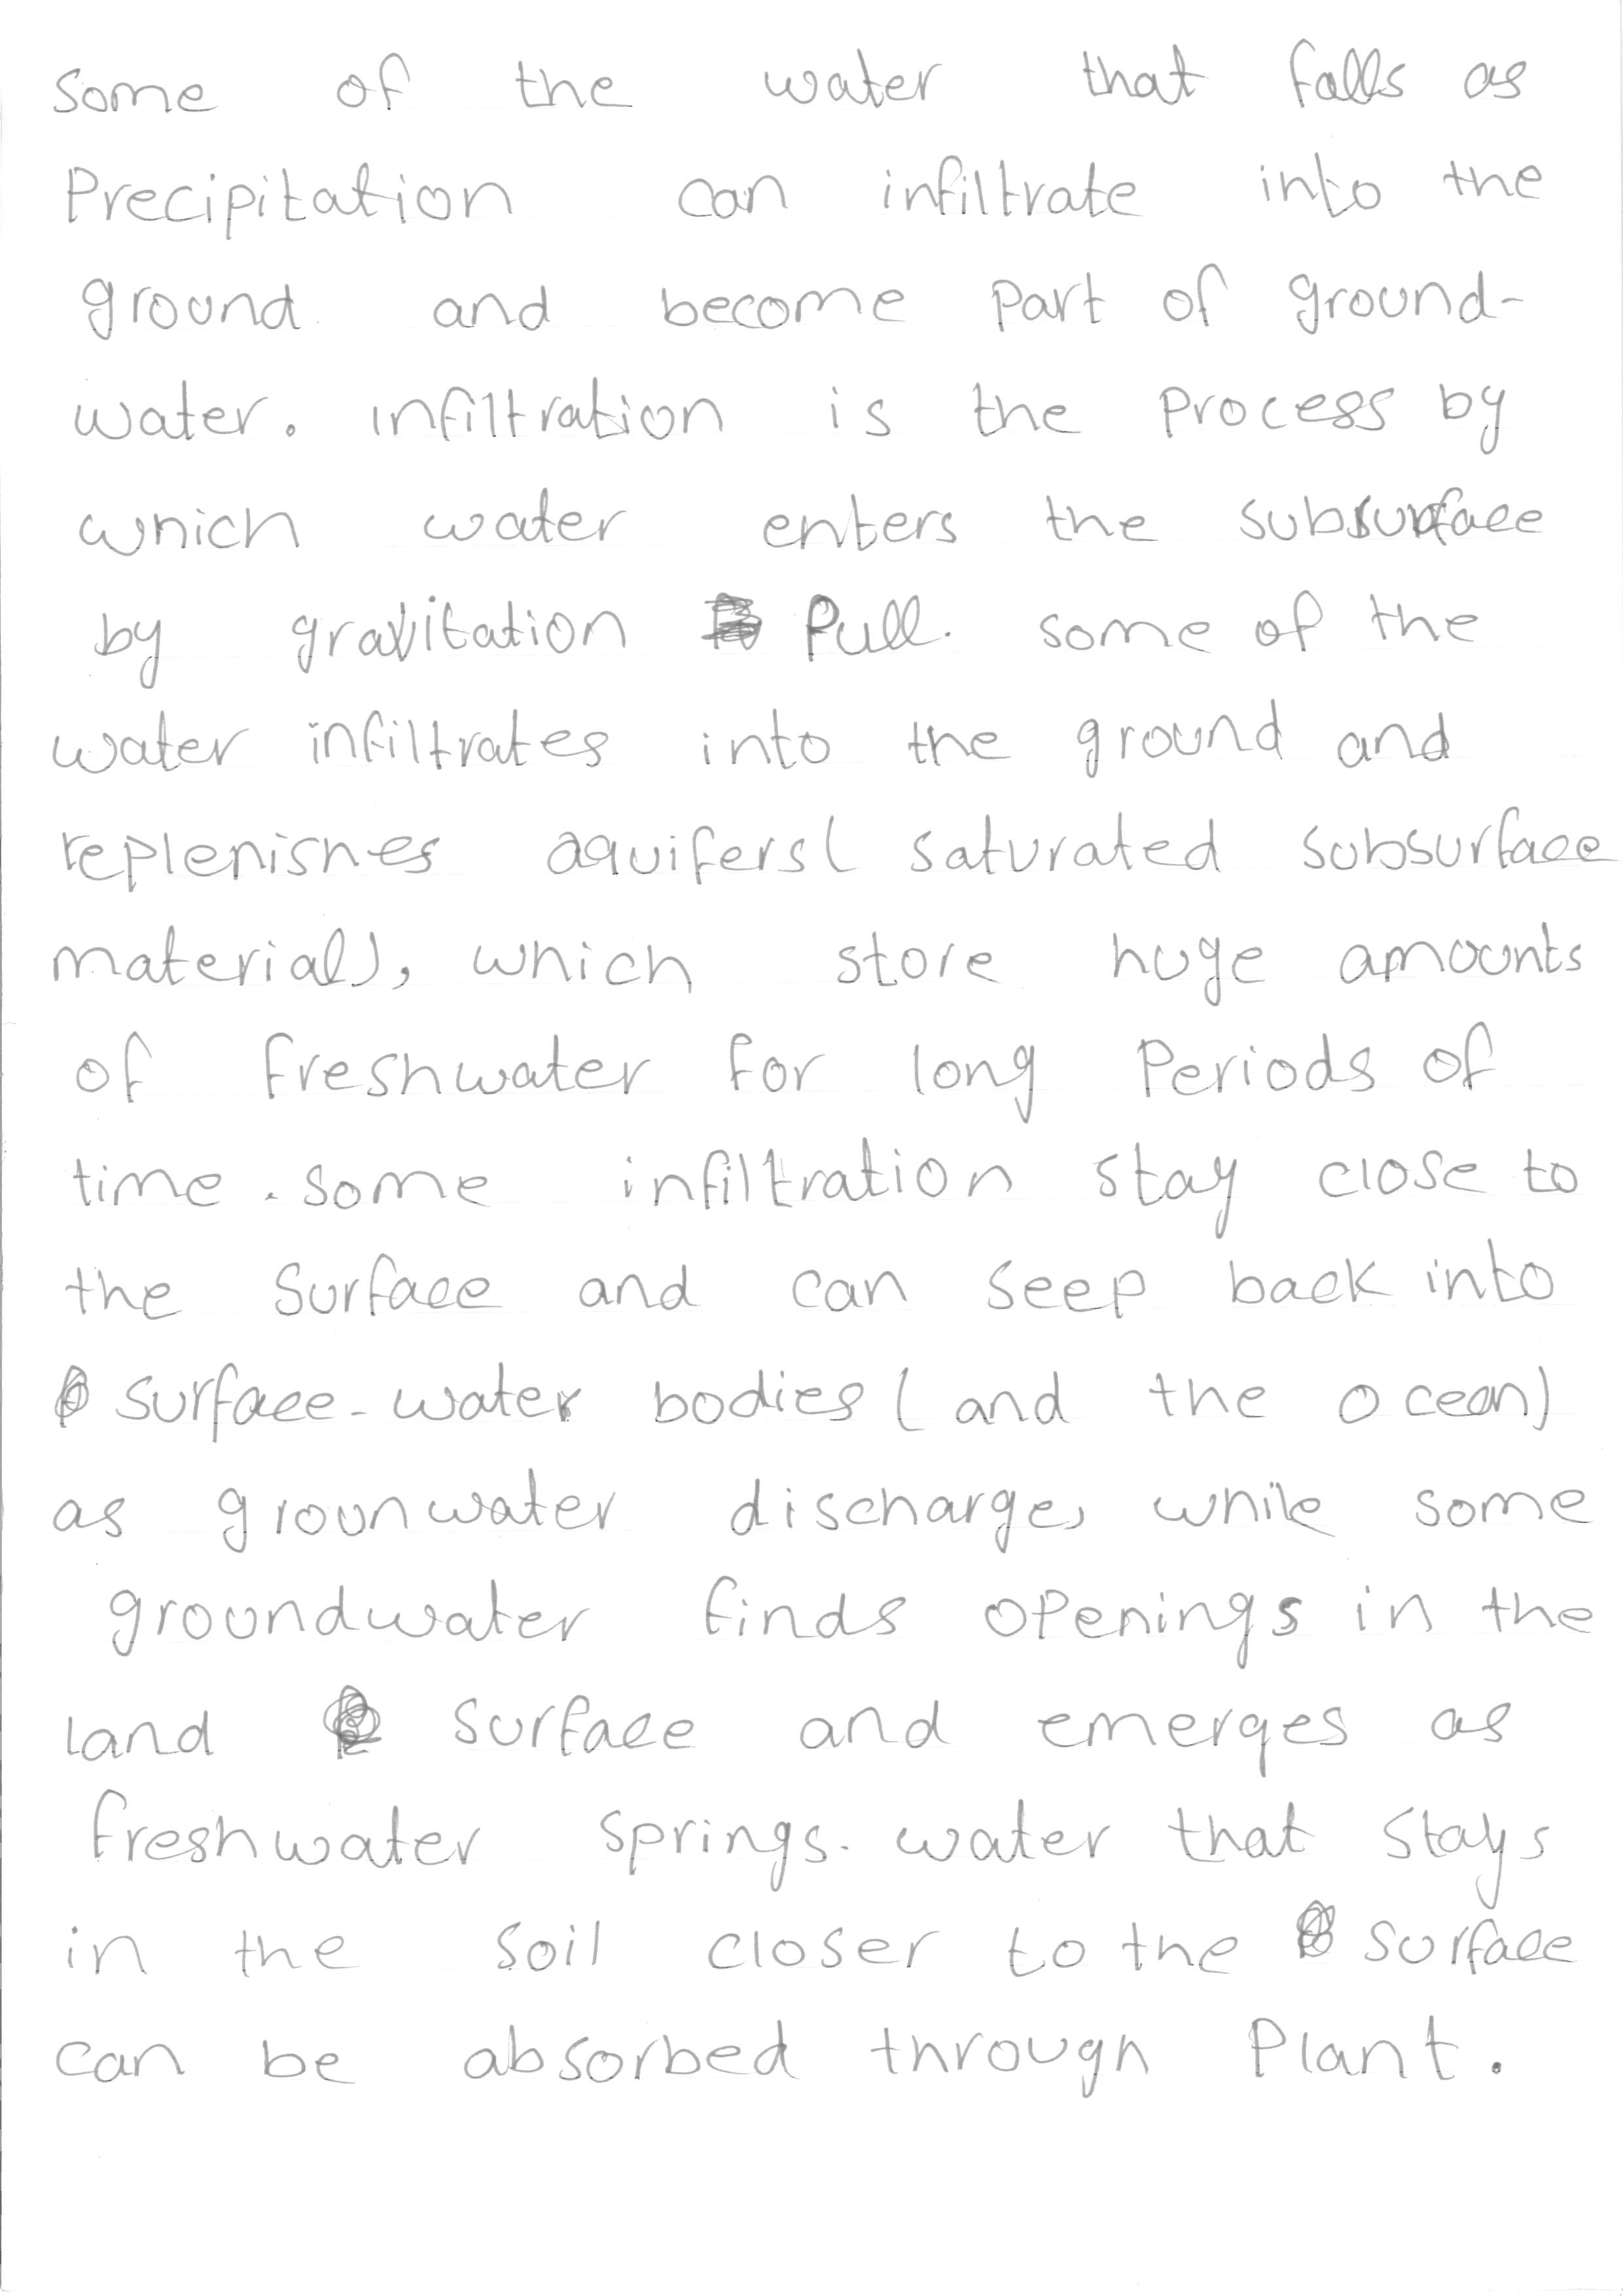 some of the water that falls as
Precipitation can infiltrate into the
ground and become part of ground-
water. infiltration is the process by
which water enters the subsurface
by gravitation Pull. some of the
water infiltrates into the ground and
replenishes aquifers( saturated subsurface
material), which store huge amounts
of freshwater for long Periods of
time. some infiltration stay close to
the surface and can seep back into
surface-water bodies (and the ocean)
as grounwater discharge, while some
groundwater finds openings in the
land surface and emerges as
freshwater springs. water that stays
in the soil closer to the surface
can be absorbed through Plant.